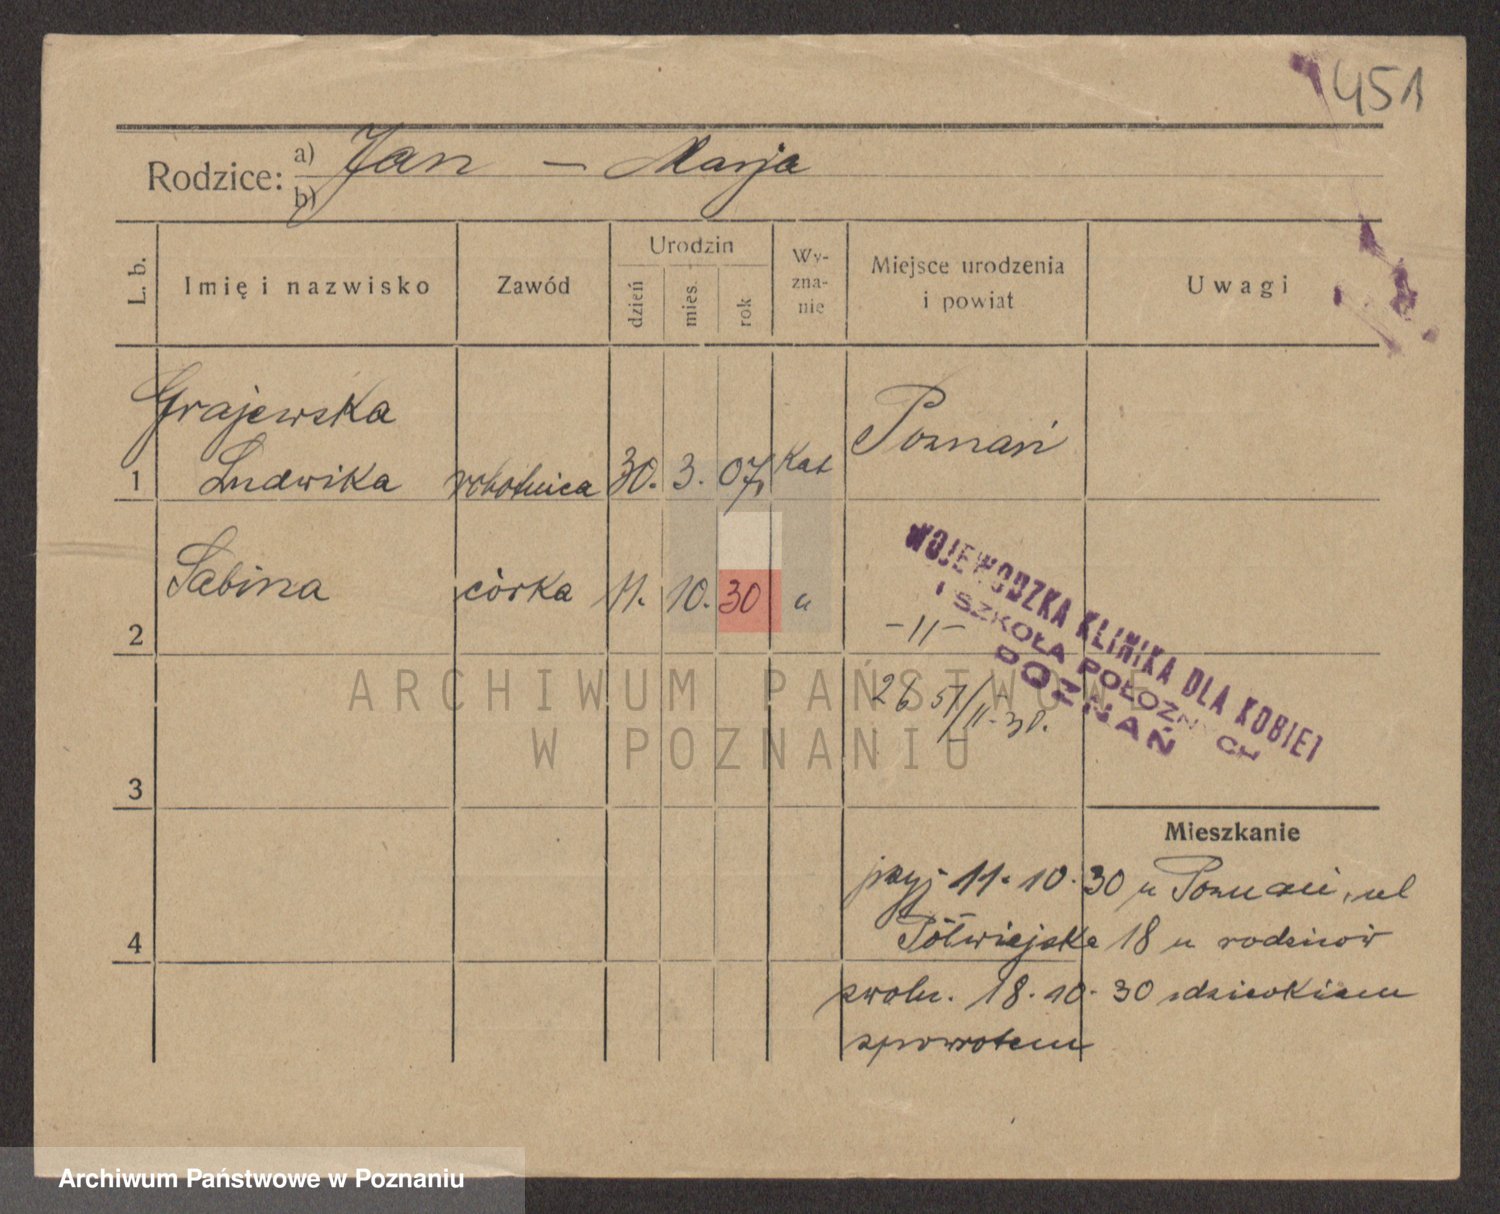 451
Rodzice: a) Jan – Marja
b)
L. b. Imię i nazwisko Zawód Urodzin dzień mies. rok Wy-zna-nie Miejsce urodzenia i powiat Uwagi
Grajewska
1 Ludwika robotnica 30. 3. 07. Kat Poznań
2 Sabina córka 11. 10. 30 " -"-
WOJEWODZKA KLINIKA DLA KOBIET
I SZKOŁA POŁOŻNYCH
POZNAŃ
ARCHIWUM PAŃSTWOWE
W POZNANIU
3
Mieszkanie
przyj 11. 10. 30 u Poznań, ul
4 Półwiejska 18 u rodziców
zwoln. 18. 10. 30 zdzieckiem
zpowrotem
Archiwum Państwowe w Poznaniu